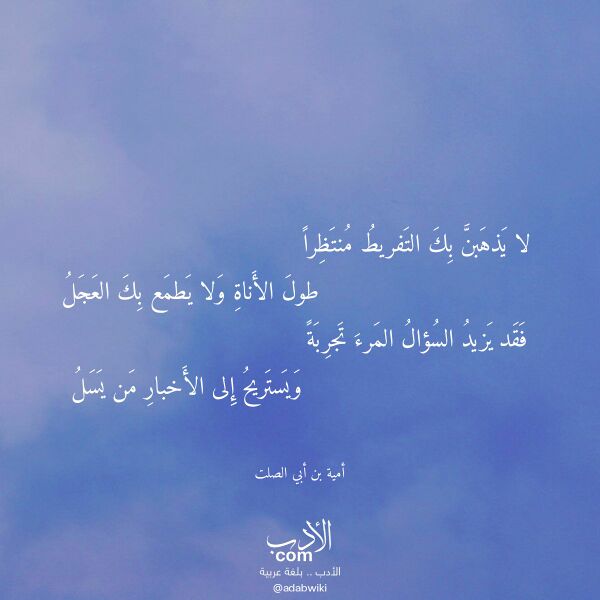 لا يَذهَبنَّ بِكَ التَفريطُ مُنتَظِراً
طولَ الأَناةِ وَلا يَطمَع بِكَ العَجَلُ
فَقَد يَزيدُ السُؤالُ المَرءَ تَجرِبَةً
وَيَستَريحُ إِلى الأَخبارِ مَن يَسَلُ
أمية بن أبي الصلت
الأدب
com
الأدب .. بلغة عربية
@adabwiki